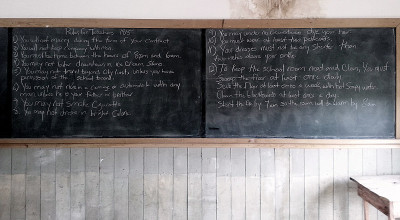 Rules for Teachers 1915
1) You will not marry during the term of your contract.
2) You will not keep company with men.
3) You must be home between the hours of 8pm and 6am.
4) You may not loiter downtown in ice cream stores.
5) You may not travel beyond city limits unless you have
permission of the school board.
6) You may not ride in a carriage or automobile with any
man unless he is your father or brother
7) You may not smoke cigarettes
8) You may not dress in bright colors.
9) You may under no circumstance dye your hair
10) You must wear at least two petticoats.
11) Your dresses must not be any shorter than
two inches above your ankle
12) To keep the school room neat and clean, You must
Sweep the floor at least once daily.
Scrub the floor at least once a week, with hot soapy water
Clean the blackboards at least once a day.
Start the fire by 7am so the room will be warm by 8am